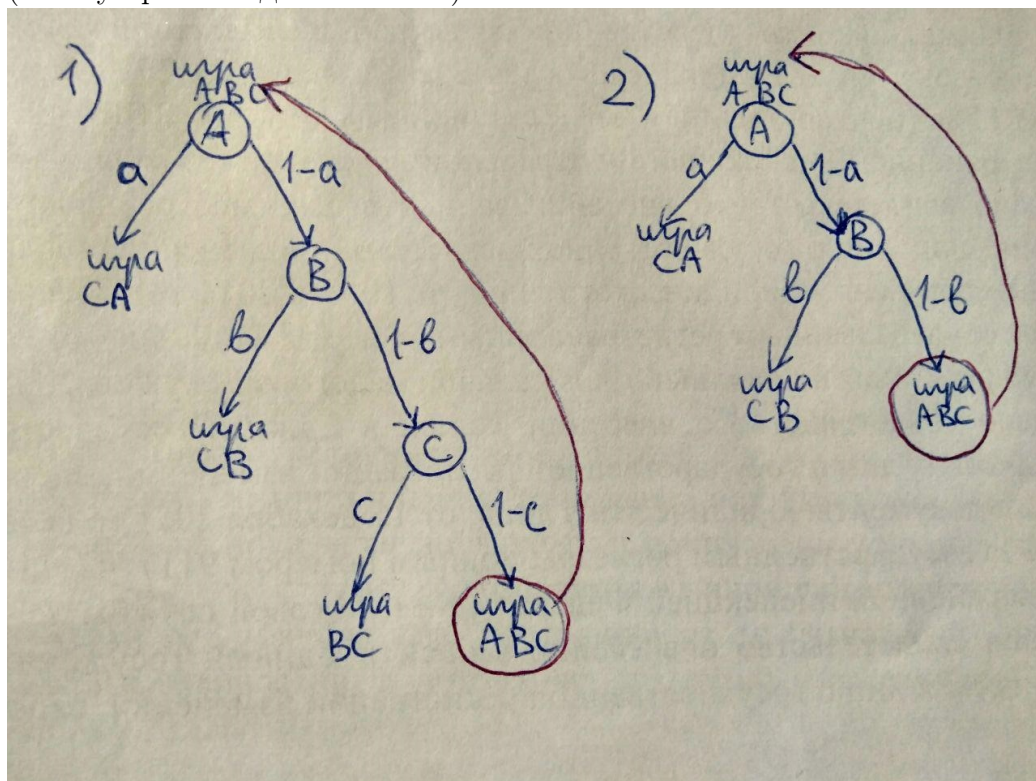 1)
игра
ABC
A
a
1-a
игра
CA
B
в
1-в
игра
CB
C
c
1-c
игра
BC
игра
ABC
2)
игра
ABC
A
a
1-a
игра
CA
B
в
1-в
игра
CB
игра
ABC